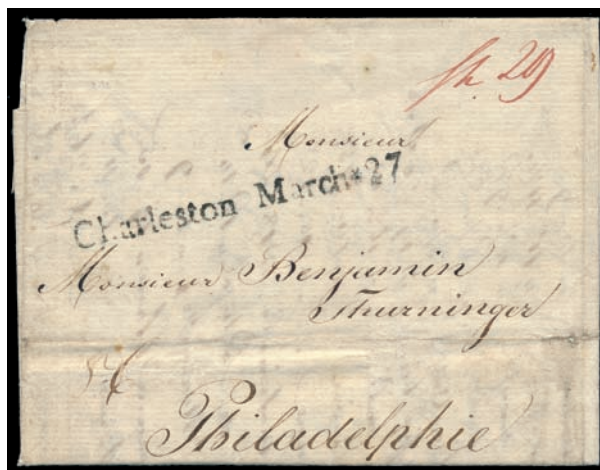 Sh. 20
Monsieur
Charleston March*27
Monsieur Benjamin
Thurninger
Philadelphie